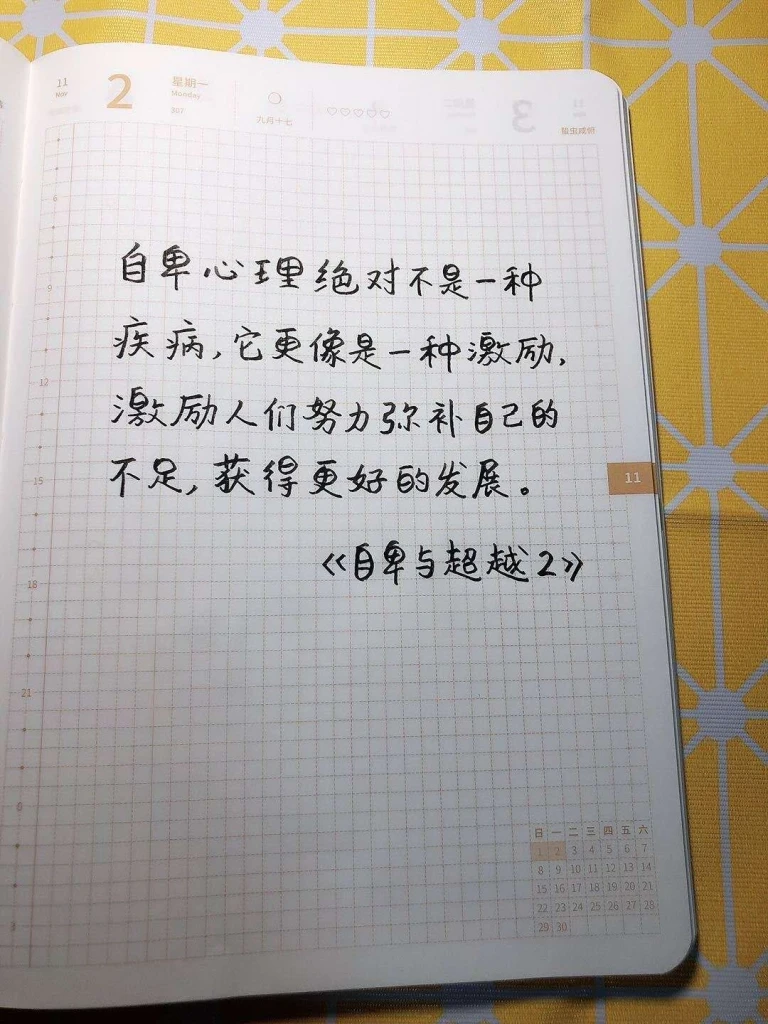 11 2 星期一
Nov Monday
307 九月十七
自卑心理绝对不是一种
疾病,它更像是一种激励,
激励人们努力弥补自己的
不足,获得更好的发展。
《自卑与超越2》
6
9
12
15
18
21
11
日 一 二 三 四 五 六
1 2 3 4 5 6 7
8 9 10 11 12 13 14
15 16 17 18 19 20 21
22 23 24 25 26 27 28
29 30